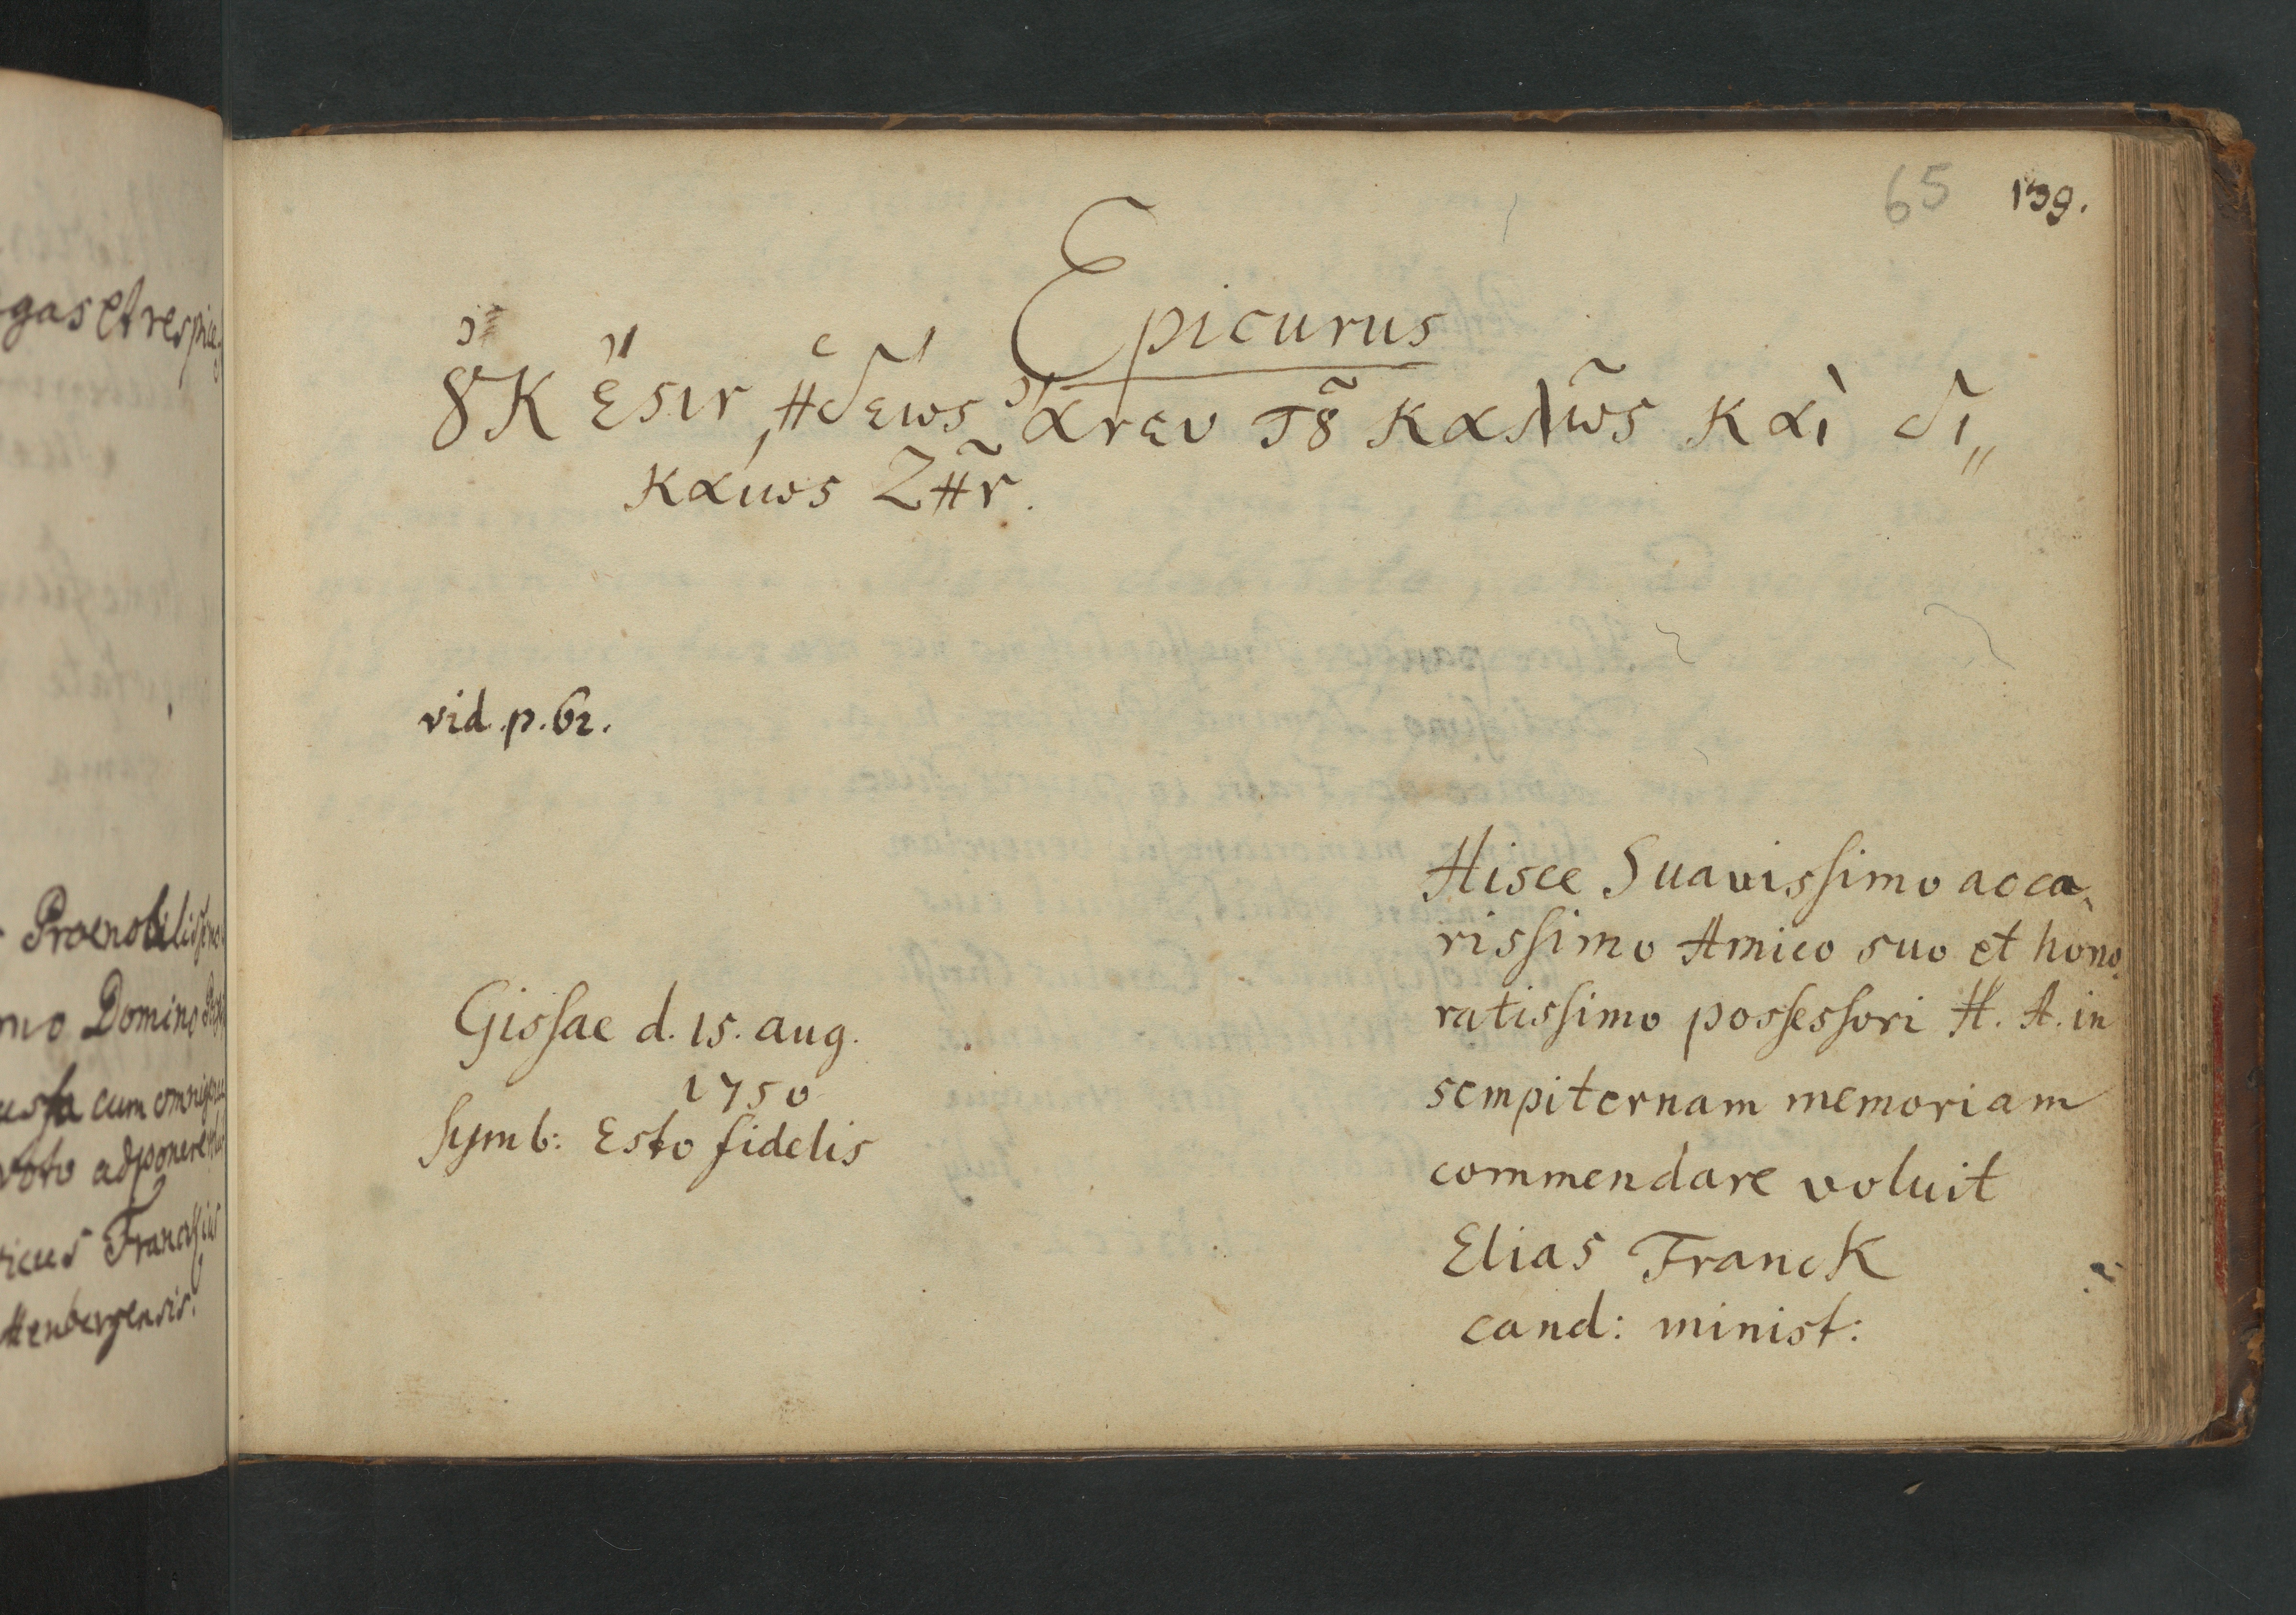 65 139.
Epicurus
ȣ̓κ ἔϛιν ἡδεως ἄνευ τȣ͂ καλῶς καὶ δι„
καίως Ζῆν.
vid. p. 62.
Gissae d. 15. aug.
1750
Symb: Esto fidelis
Hisce Suavissimo ac ca-
rissimo Amico suo et hono-
ratissimo possessori H. A. in
sempiternam memoriam
commendare voluit
Elias Franck
cand: minist:
gas et respice
Domino
cum
voto adponere